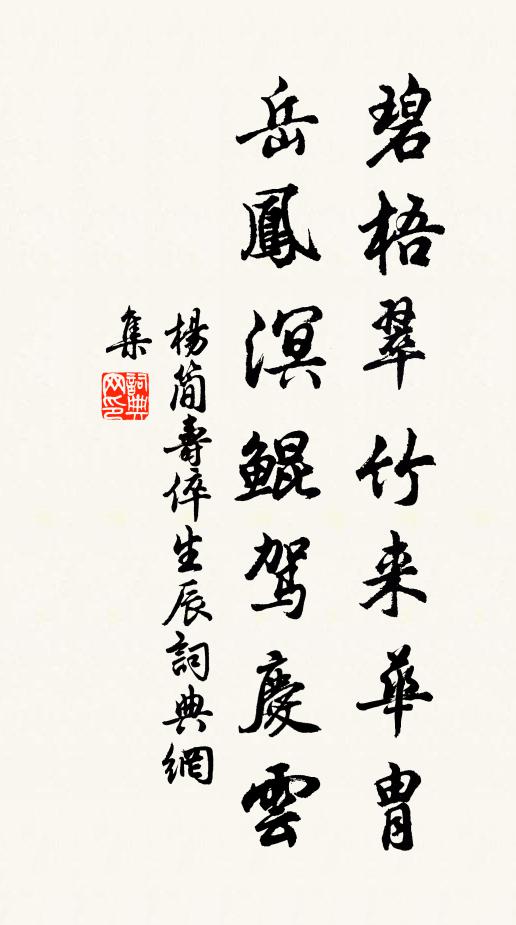 碧梧翠竹来華胄
岳鳳溟鯤駕慶雲
楊簡壽倅生辰詞典網
集
詞典
网印